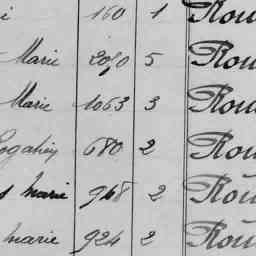 i 160 1 Rou
Marie 2090 5 Rou
Marie 1063 3 Rou
680 2 Rou
s marie 968 2 Rou
marie 924 2 Rou